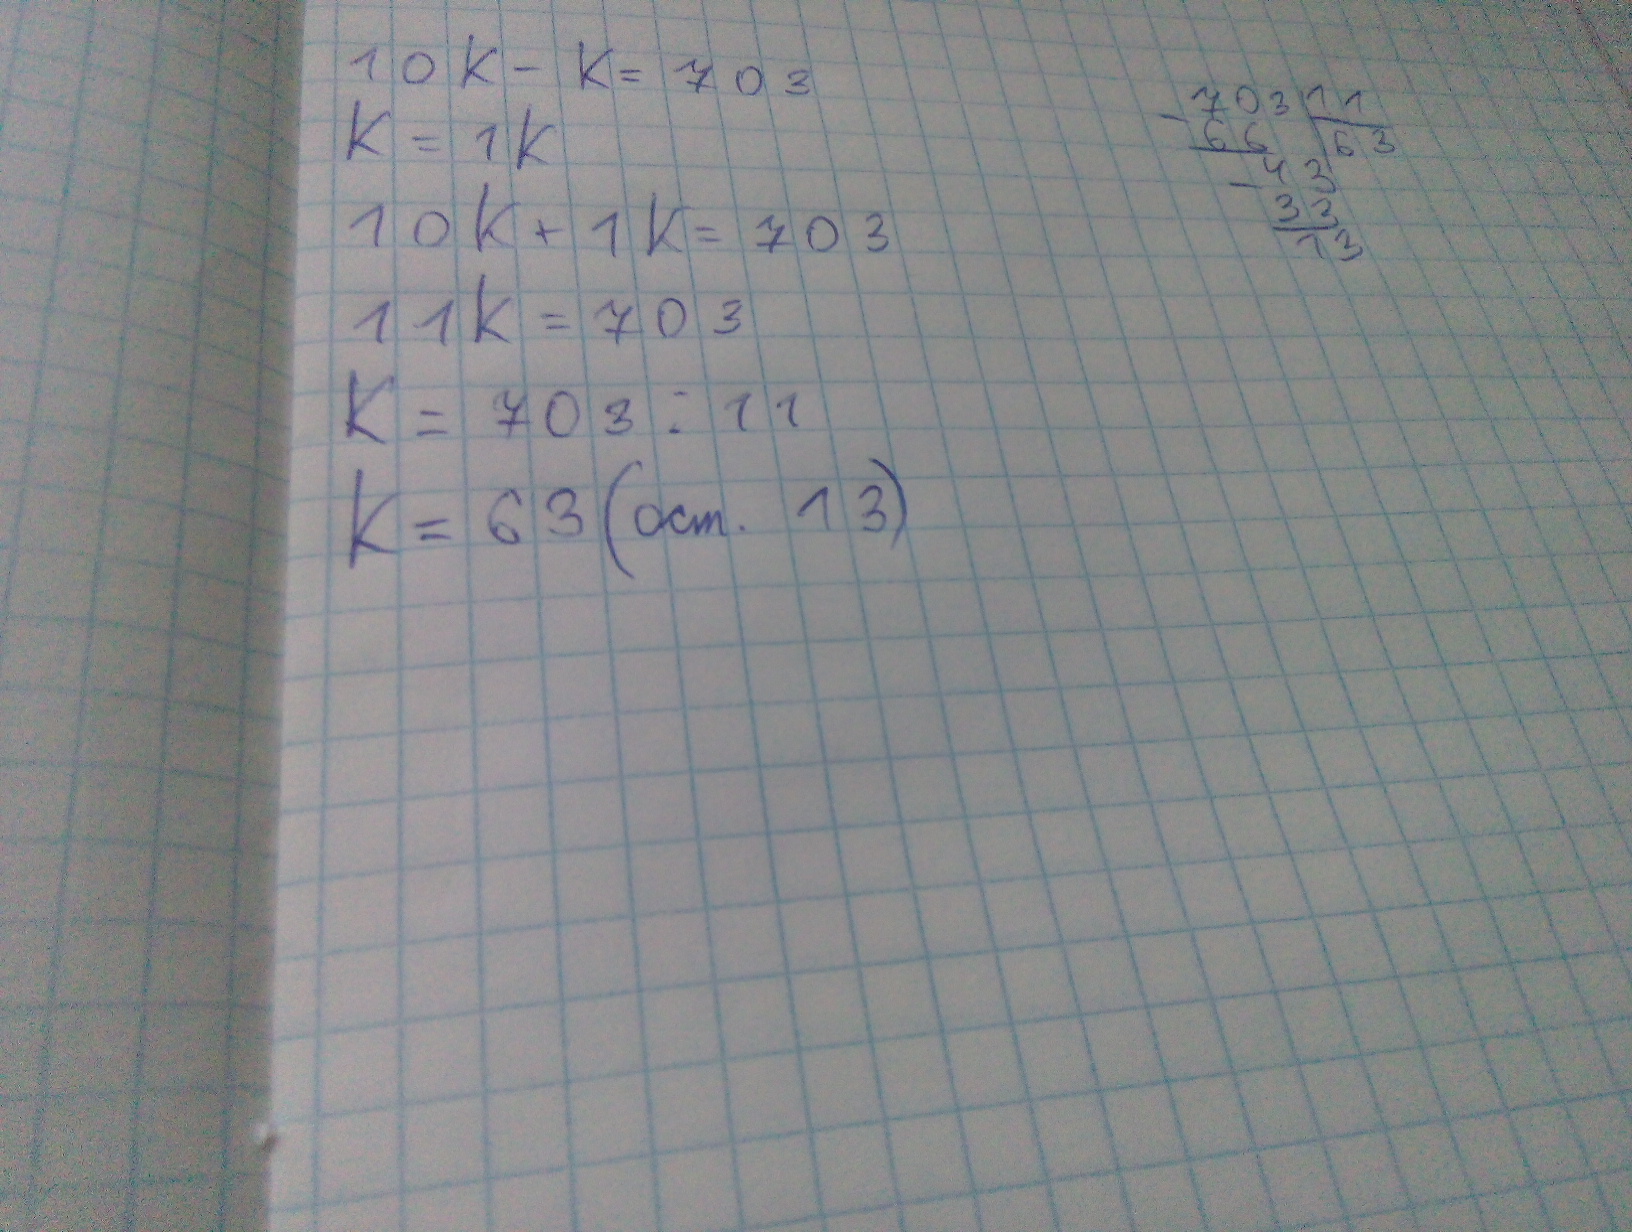 10K - K = 703
K = 1K
10K + 1K = 703
11K = 703
K = 703 : 11
K = 63 (ост. 13)
- 703 11
66 63
- 43
33
13